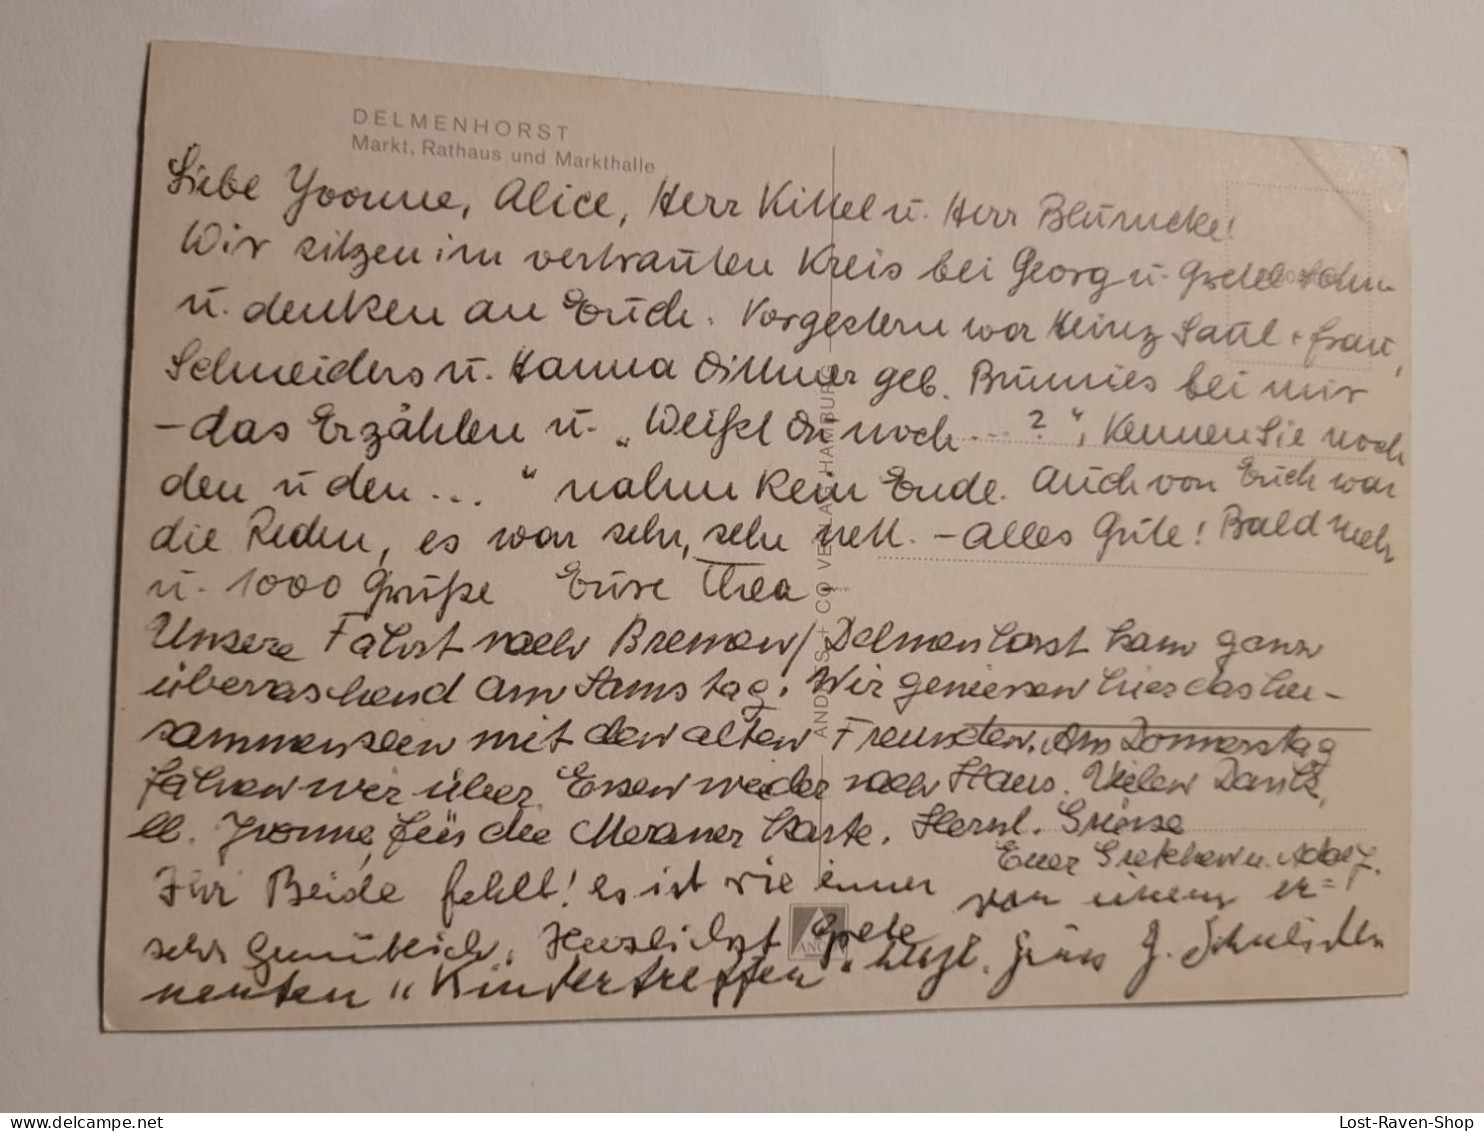 DELMENHORST
Markt, Rathaus und Markthalle
Liebe Yvonne, Alice, Herr Kittel u. Herr
Wir sitzen im vertrauten Kreis bei Georg u. Gretel
u. denken an Euch. Vorgestern war Heinz Saul + Frau,
Schneiders u. Hanna Dittmer geb. Brumies bei mir
- das Erzählen u. „Weißt Du noch ... ?", Kennen Sie noch
den u den ... " nahm kein Ende. Auch von Euch war
die Reden, es war sehr, sehr nett. - Alles Gute! Bald mehr
u. 1000 Grüße Eure Thea
Unsere Fahrt nach Bremen/Delmenhorst kam ganz
überraschend am Samstag. Wir geniessen hier das Zu-
sammensein mit den alten Freunden. Am Donnerstag
fahren wir über Essen wieder nach Haus. Vielen Dank,
ll. Yvonne, für die Meraner Karte. Herzl. Grüsse
Euer Gretchen u. Adolf.
Ihr Beide fehlt! es ist wie immer
sehr gemütlich. Herzlichst Grete
von einem er=
neuten „Kindertreffen" herzl. Grüss G.
ANDRES + CO VERLAG HAMBURG
ANCO
Lost-Raven-Shop